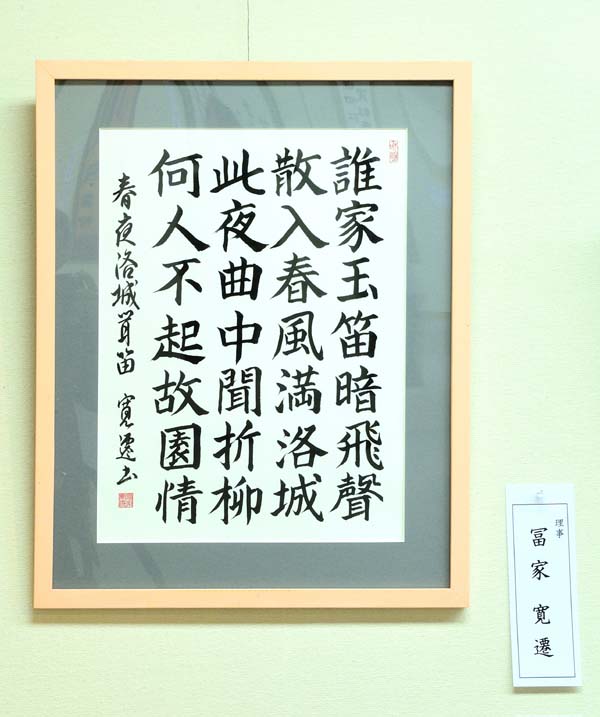 誰家玉笛暗飛聲
散入春風満洛城
此夜曲中聞折柳
何人不起故園情
春夜洛城聞笛 寛遷書
理事
冨家寛遷